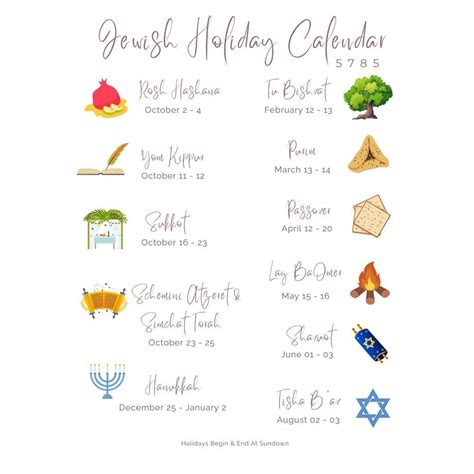 Jewish Holiday Calendar
5785
Rosh Hashana
October 2 - 4
Yom Kippur
October 11 - 12
Sukkot
October 16 - 23
Schemini Atzeret &
Simchat Torah
October 23 - 25
Hanukkah
December 25 - January 2
Tu Bishvat
February 12 - 13
Purim
March 13 - 14
Passover
April 12 - 20
Lag BaOmer
May 15 - 16
Shavuot
June 01 - 03
Tisha B'av
August 02 - 03
Holidays Begin & End At Sundown